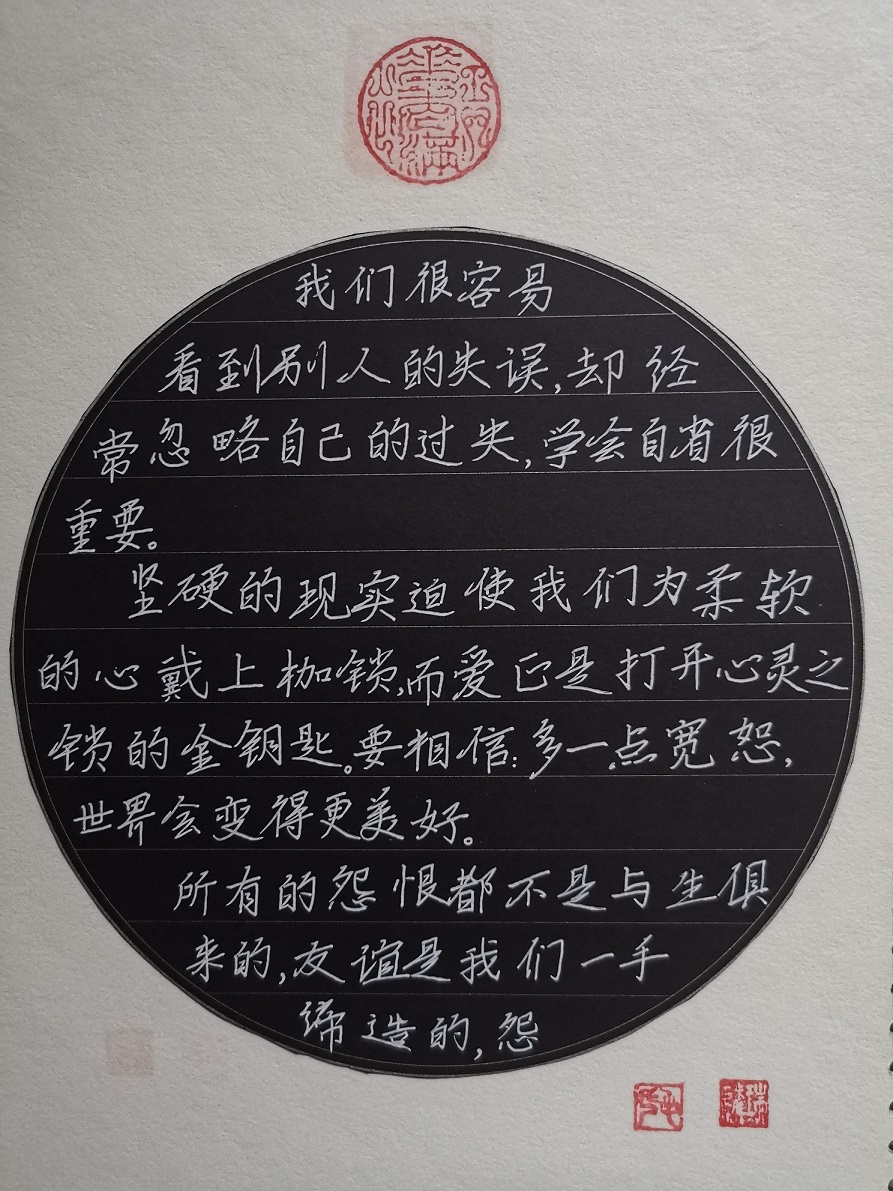 我们很容易
看到别人的失误,却经
常忽略自己的过失,学会自省很
重要。
坚硬的现实迫使我们为柔软
的心戴上枷锁,而爱正是打开心灵之
锁的金钥匙。要相信:多一点宽恕,
世界会变得更美好。
所有的怨恨都不是与生俱
来的,友谊是我们一手
缔造的,怨